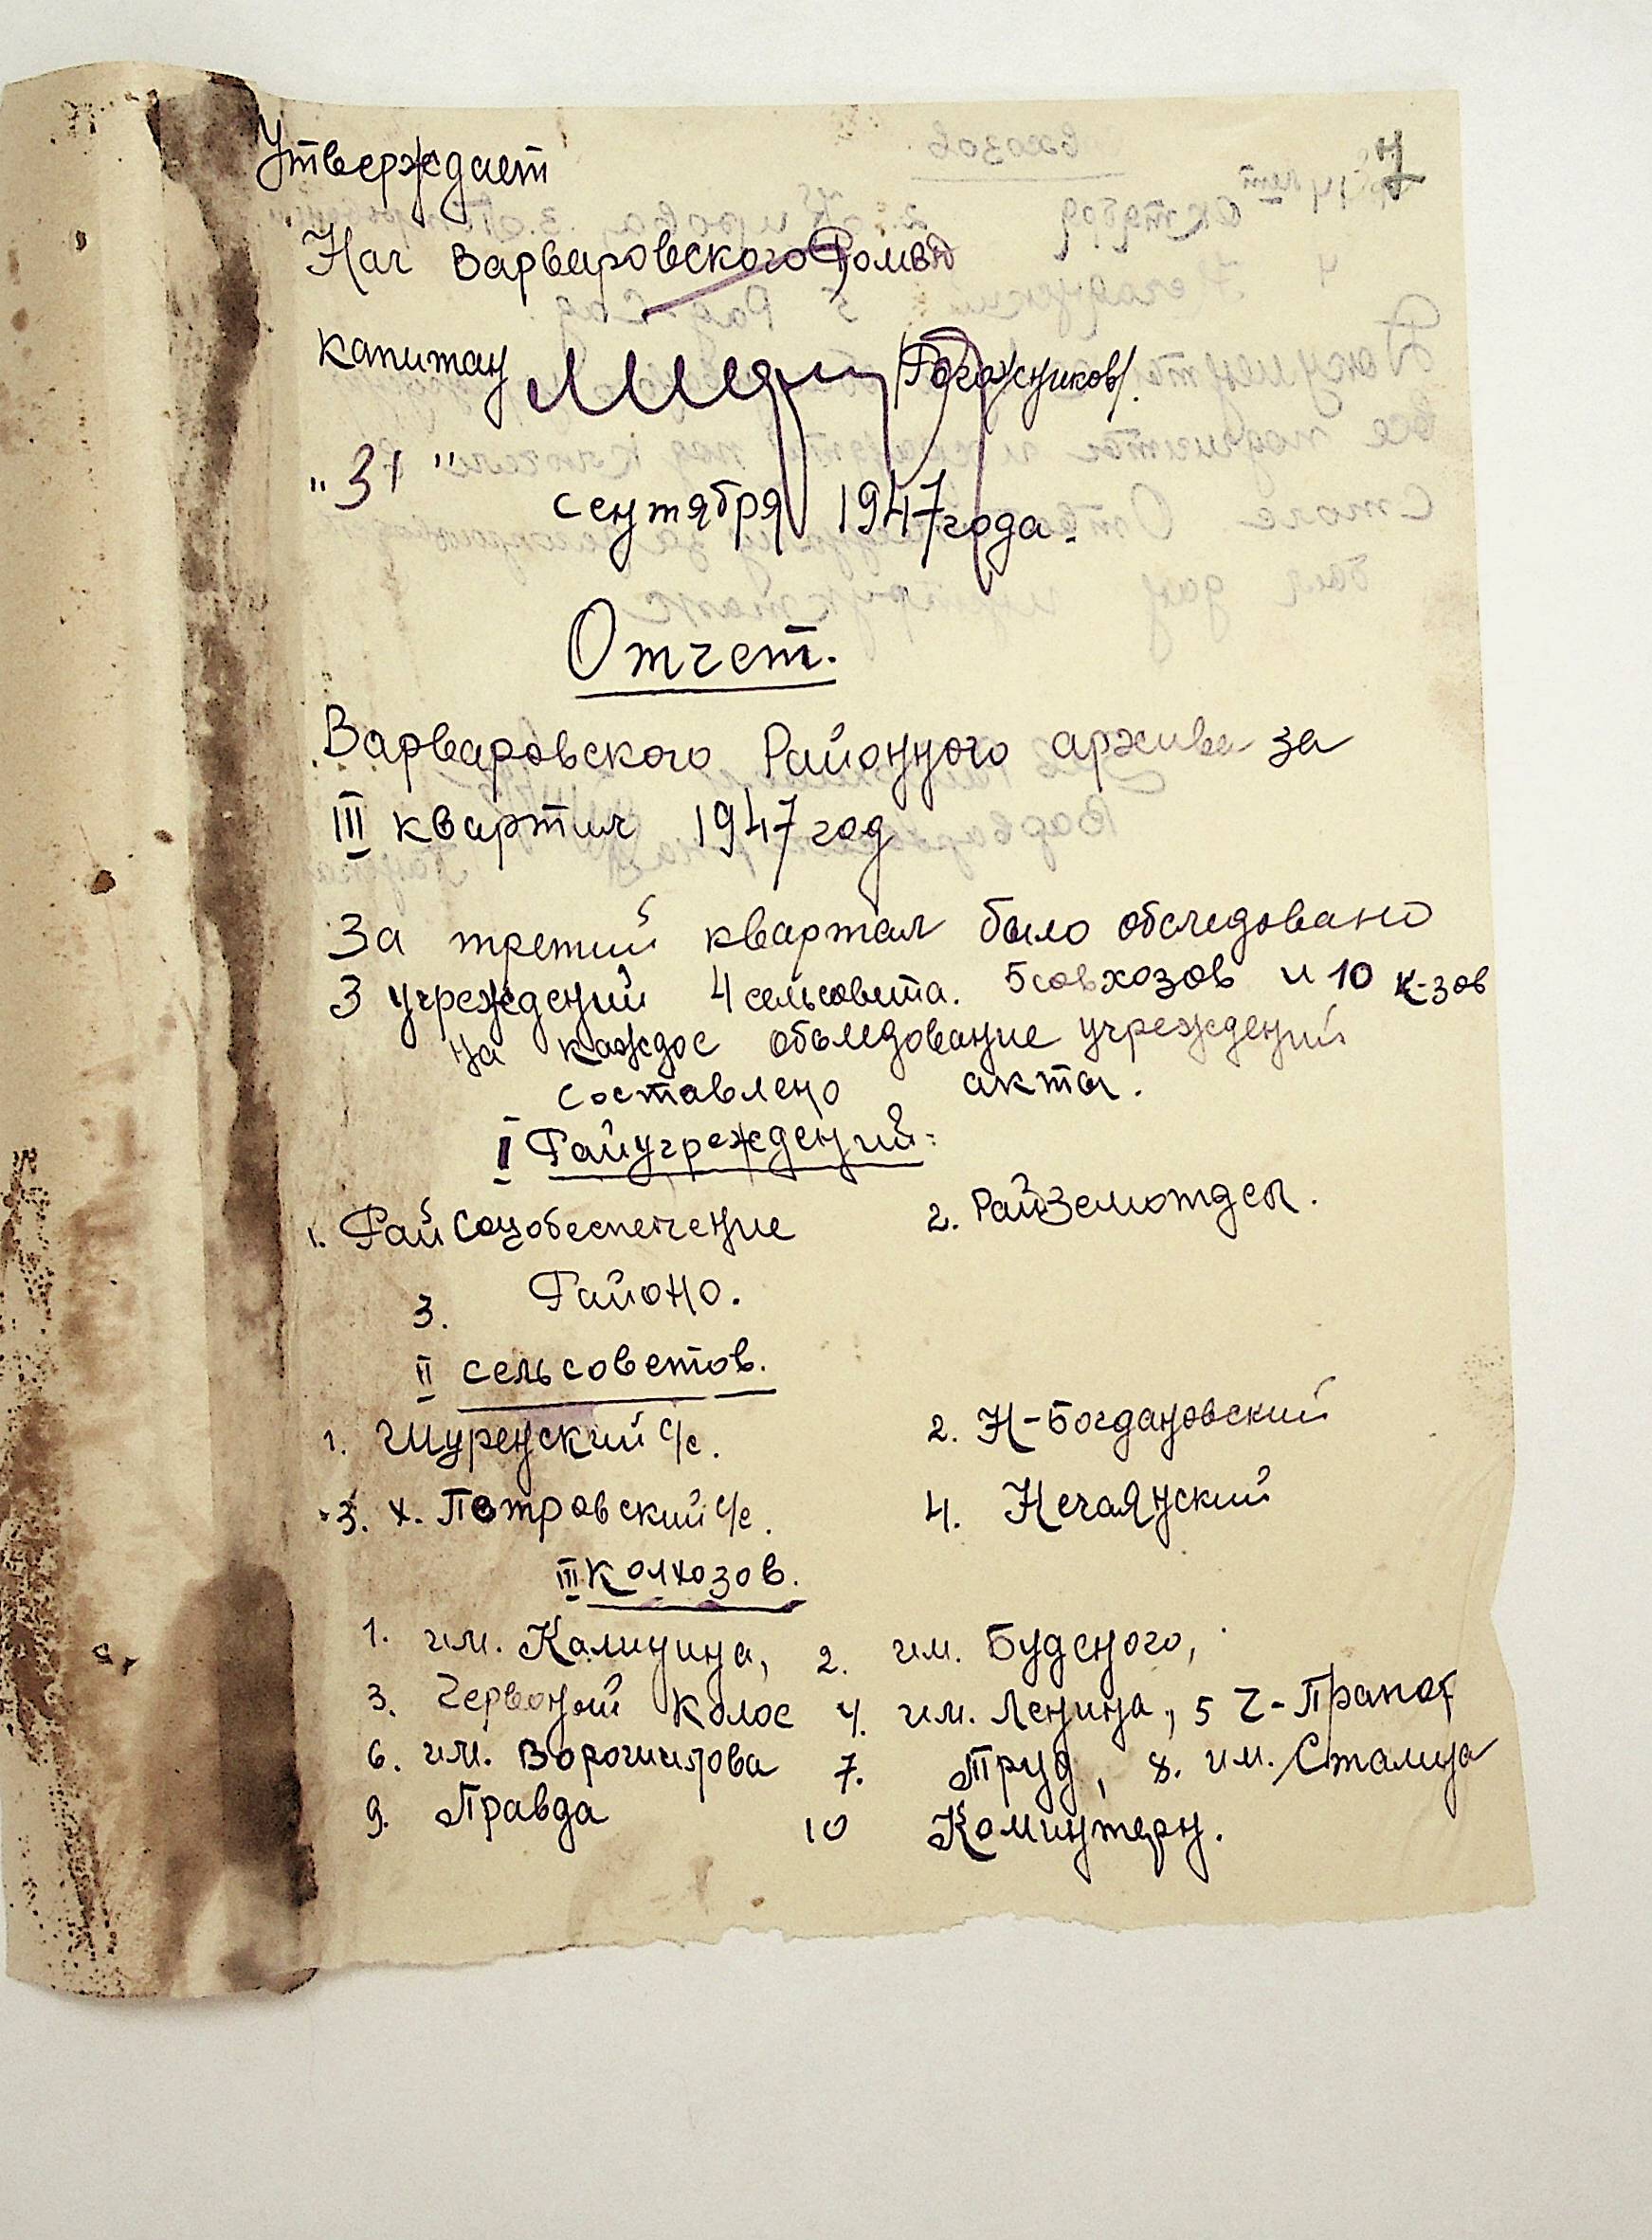 7
Утверждает
Нач Варваровского Ромвд
капитан /Рогожников/.
"31"
сентября 1947 года.
Отчет.
Варваровского Районного архива за
III квартал 1947 год
За третий квартал было обследовано
3 учреждений 4 сельсовета. 5 совхозов и 10 к-зов
на каждое обследование учреждений
составлено акты.
I Райучреждений:
1. Рай Соцобеспечение 2. РайЗемотдел.
3. Районо.
II сельсоветов.
1. Шуренский с/с. 2. Н-Богдановский
3. х. Петровский с/с. 4. Нечаянский
III колхозов.
1. им. Калинина, 2. им. Буденого,
3. Червоный Колос 4. им. Ленина, 5 Ч-Прапор
6. им. Ворошилова 7. Труд, 8. им. Сталина
9. Правда 10 Коминтерн.